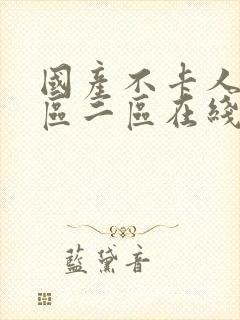 國產不卡人
區二區在綫
藍黛音